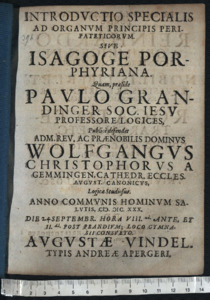 INTRODVCTIO SPECIALIS
AD ORGANVM PRINCIPIS PERI-
PATETICORVM.
SIVE
ISAGOGE POR-
PHYRIANA.
Quam, præside
PAVLO GRAN-
DINGER SOC. IESV
PROFESSORE LOGICES,
Publicè defendet
ADM. REV. AC PRÆNOBILIS DOMINVS
WOLFGANGVS
CHRISTOPHORVS A
GEMMINGEN, CATHEDR. ECCLES.
AVGVST. CANONICVS,
Logicæ Studiosus.
ANNO COMMVNIS HOMINVM SA-
LVTIS, CIƆ. IƆC. XXX.
DIE SEPTEMBR. HORA VIII. ANTE, ET
II. POST PRANDIVM; LOCO GYMNA-
SII CONSVETO.
AVGVSTÆ VINDEL.
TYPIS ANDREÆ APERGERI.